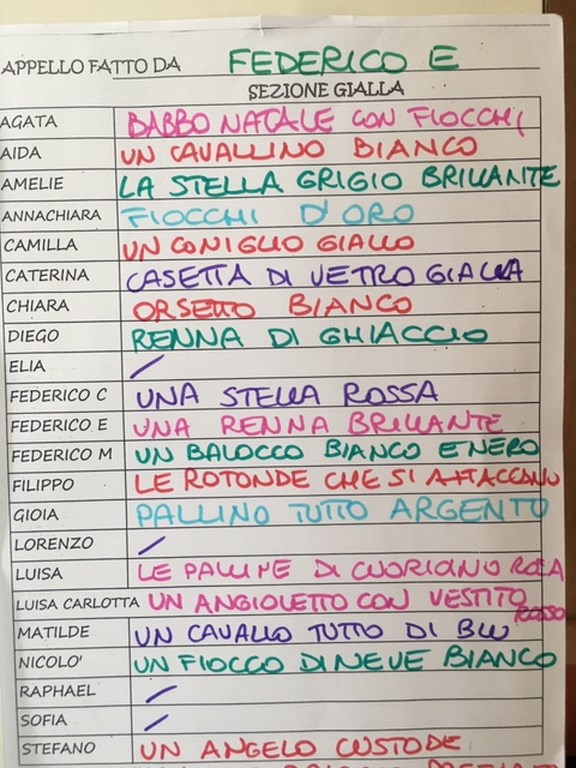 APPELLO FATTO DA FEDERICO E
SEZIONE GIALLA
AGATA BABBO NATALE CON FIOCCHI
AIDA UN CAVALLINO BIANCO
AMELIE LA STELLA GRIGIO BRILLANTE
ANNACHIARA FIOCCHI D'ORO
CAMILLA UN CONIGLIO GIALLO
CATERINA CASETTA DI VETRO GIALLA
CHIARA ORSETTO BIANCO
DIEGO RENNA DI GHIACCIO
ELIA /
FEDERICO C UNA STELLA ROSSA
FEDERICO E UNA RENNA BRILLANTE
FEDERICO M UN BALOCCO BIANCO E NERO
FILIPPO LE ROTONDE CHE SI ATTACCANO
GIOIA PALLINO TUTTO ARGENTO
LORENZO /
LUISA LE PALLINE DI CUORICINO ROSA
LUISA CARLOTTA UN ANGIOLETTO CON VESTITO
ROSSO
MATILDE UN CAVALLO TUTTO DI BLU
NICOLO' UN FIOCCO DI NEVE BIANCO
RAPHAEL /
SOFIA /
STEFANO UN ANGELO CUSTODE